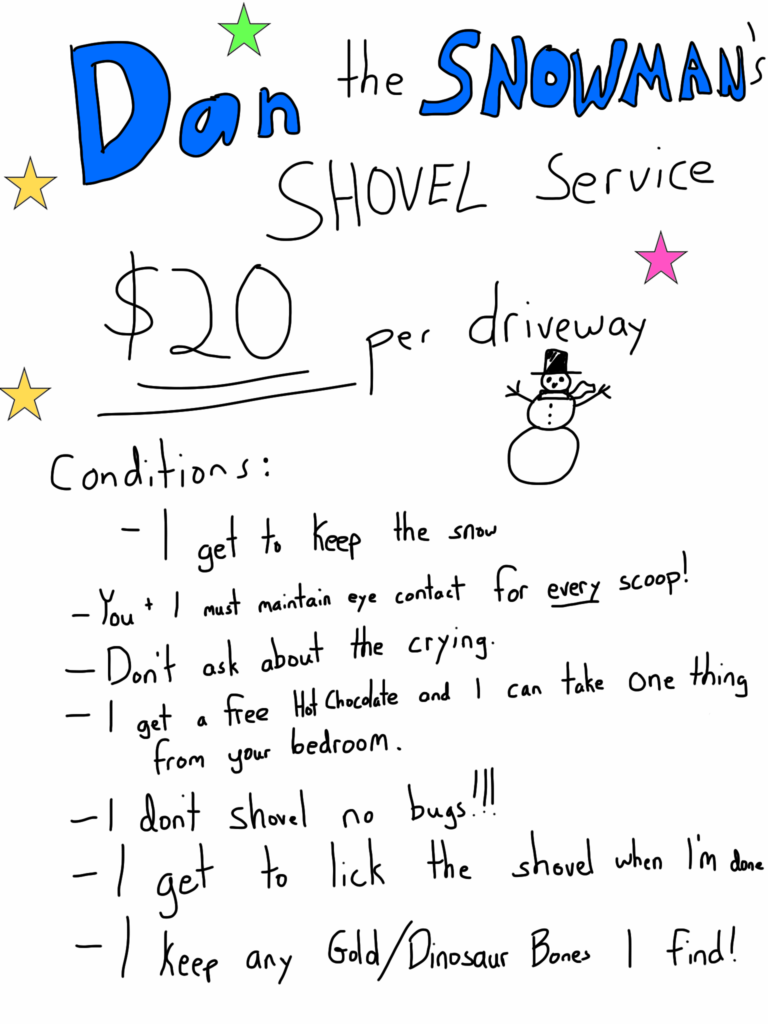 Dan the SNOWMAN's
SHOVEL Service
$20 per driveway
Conditions:
- I get to keep the snow
- You + I must maintain eye contact for every scoop!
- Don't ask about the crying.
- I get a free Hot Chocolate and I can take one thing
from your bedroom.
- I don't shovel no bugs!!!
- I get to lick the shovel when I'm done
- I keep any Gold/Dinosaur Bones I find!